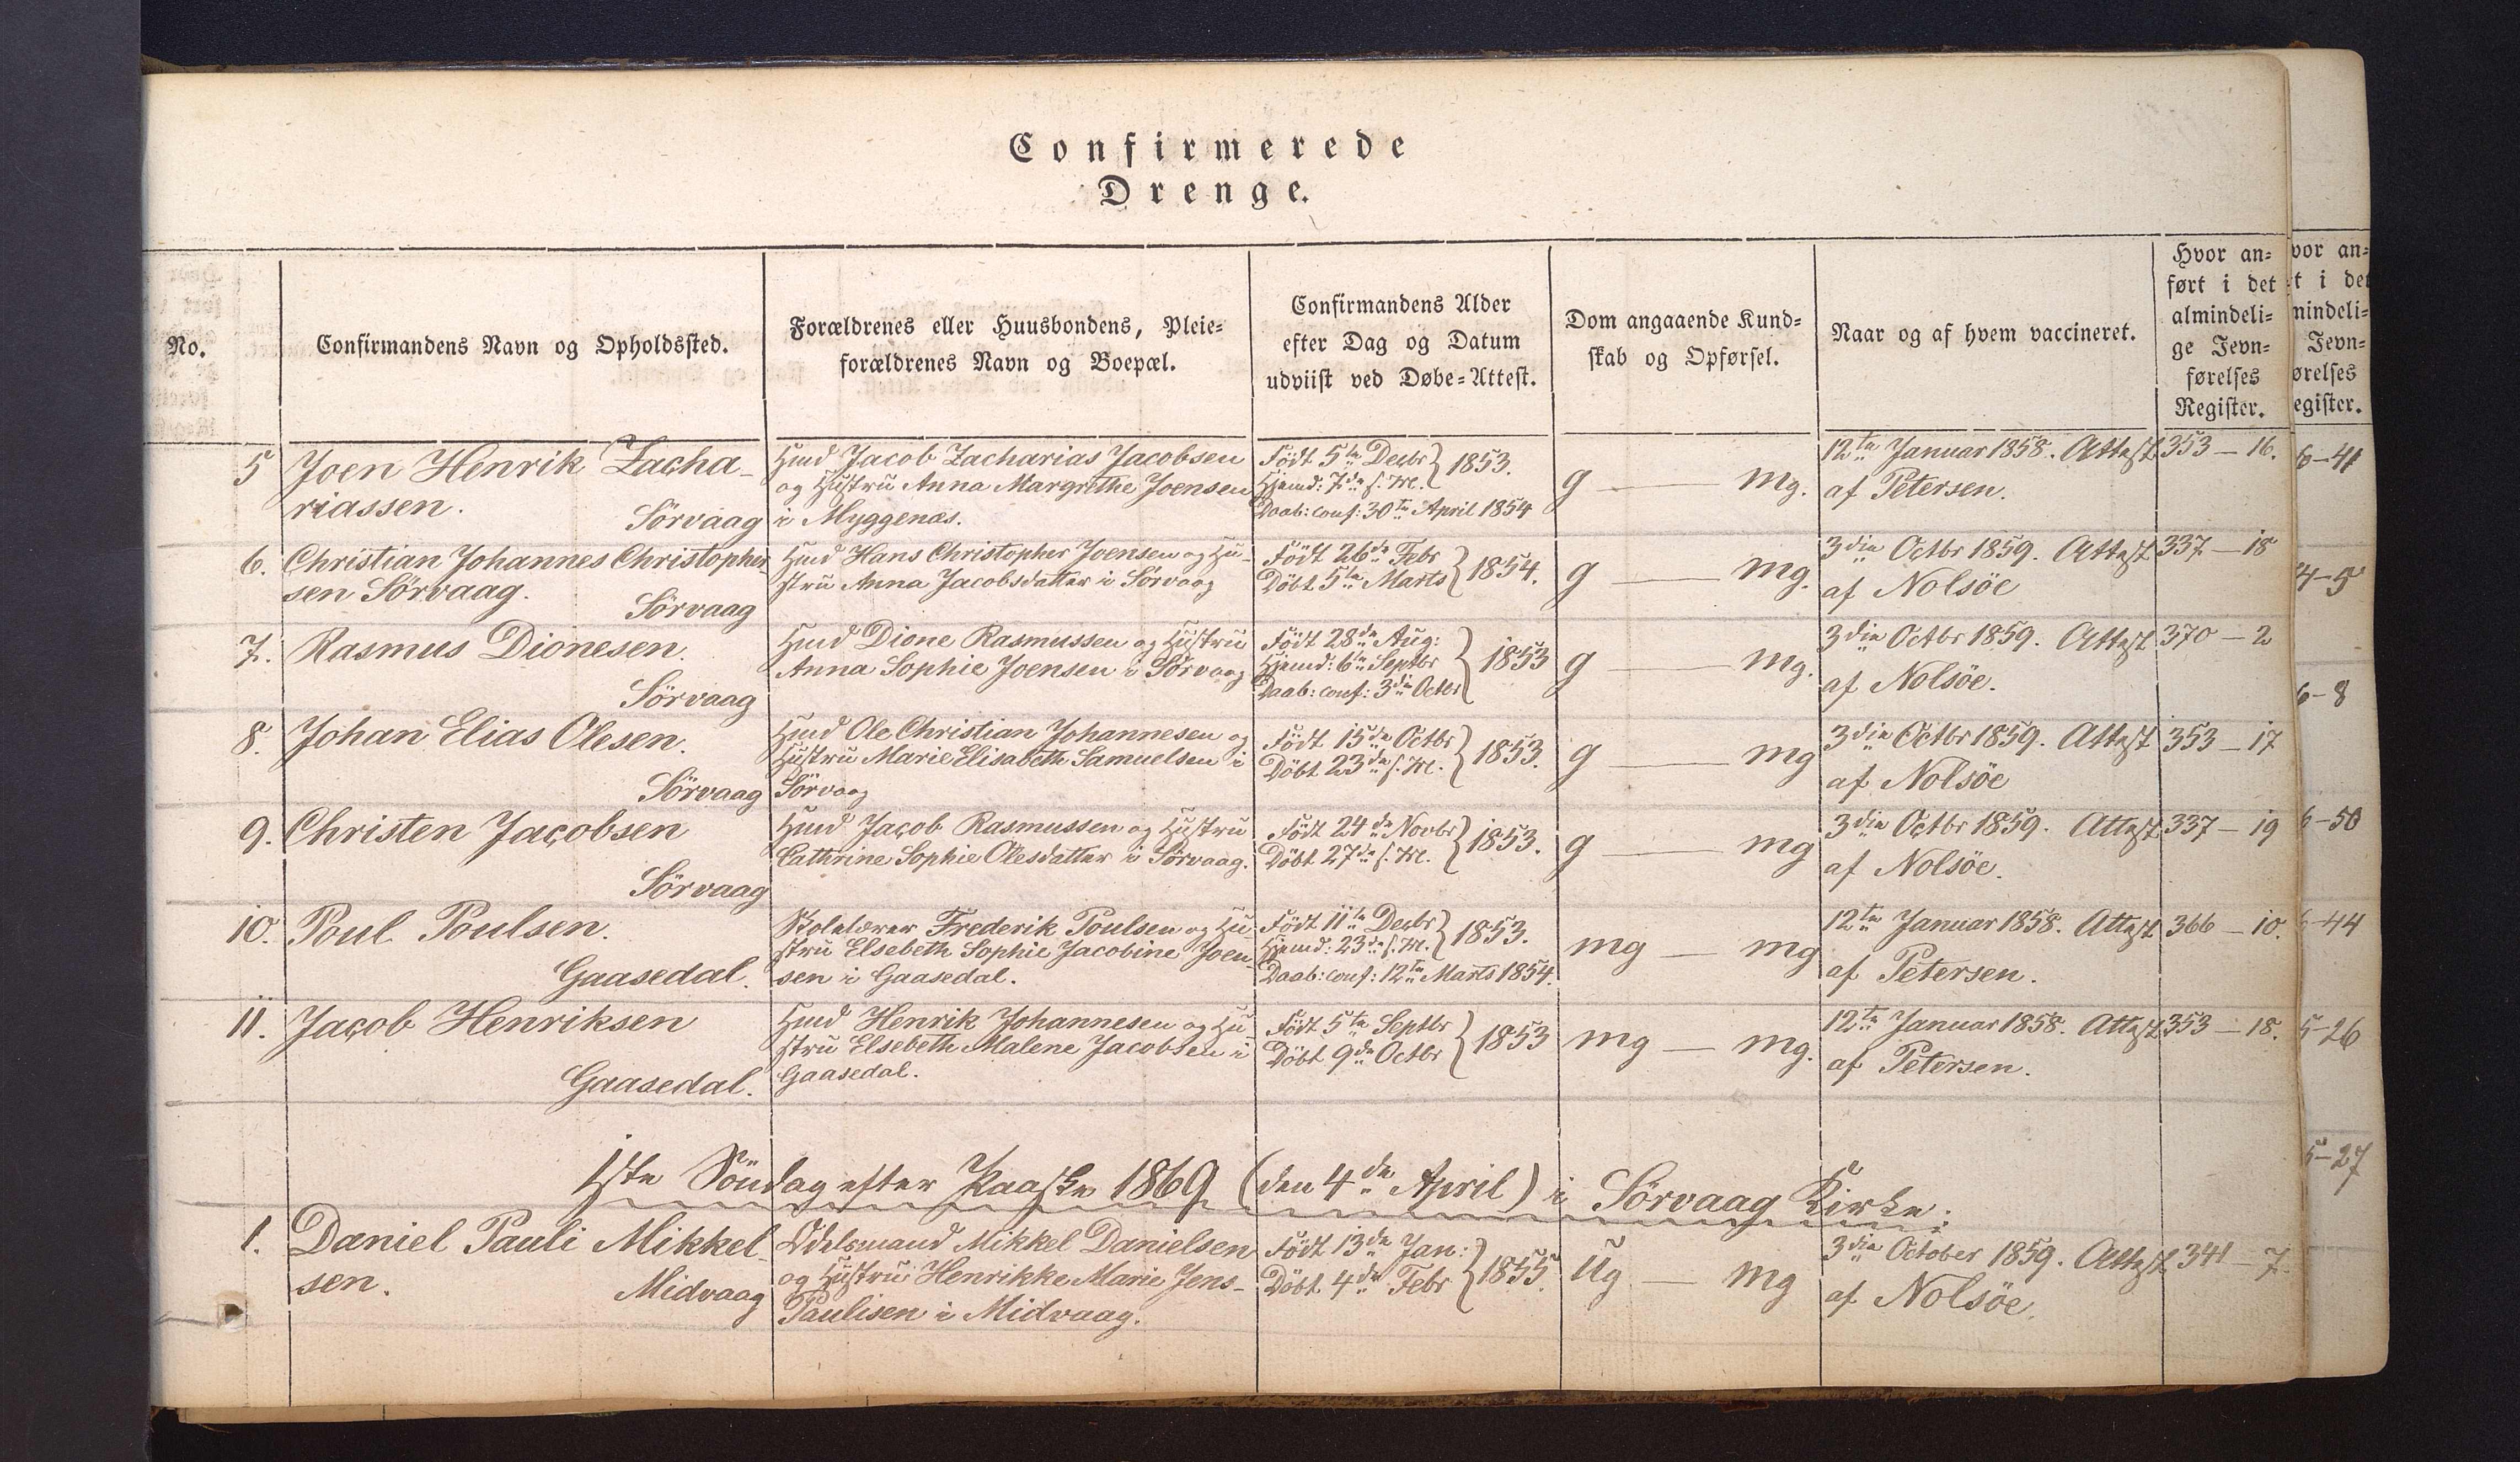 Confirmerede
Drenge.
No.
Confirmandens Navn og Opholdssted.
Forældrenes eller Huusbondens, Pleie=
forældrenes Navn og Boepæl.
Confirmandens Alder
efter Dag og Datum
udviist ved Døbe=Attest.
Dom angaaende Kund=
skab og Opførsel.
Naar og af hvem vaccineret.
Hvor an=
ført i det
almindeli=
ge Jevn=
førelses
Register.
5
Joen Henrik Zacha-
riassen.
Sörvaag
Hmd Jacob Zacharias Jacobsen
og Hustru Anna Margrethe Joensen
i Myggenæs.
Født 5te Decbr } 1853.
Hjemd: 7de s. M.
Daab: conf: 30te April 1854
g — mg.
12te Januar 1858. Attest
af Petersen.
353 — 16.
6.
Christian Johannes Christopher-
sen Sörvaag.
Sörvaag
Hmd Hans Christopher Joensen og Hu-
stru Anna Jacobsdatter i Sörvaag
Født 26de Febr } 1854.
Döbt 5te Marts
g — mg.
3die Octbr 1859. Attest
af Nolsöe
337 — 18
7.
Rasmus Dionesen.
Sörvaag
Hmd Dione Rasmussen og Hustru
Anna Sophie Joensen i Sörvaag
Født 28de Aug:
Hjemd: 6te Septbr } 1853
Daab: conf: 3die Octbr
g — mg.
3die Octbr 1859. Attest
af Nolsöe.
370 — 2
8.
Johan Elias Olesen.
Sörvaag
Hmd Ole Christian Johannesen og
Hustru Marie Elisabeth Samuelsen i
Sörvaag
Født 15de Octbr } 1853.
Döbt 23de s. M.
g — mg
3die Octbr 1859. Attest
af Nolsöe
353 — 17
9.
Christen Jacobsen
Sörvaag
Hmd Jacob Rasmussen og Hustru
Cathrine Sophie Olesdatter i Sörvaag.
Født 24de Novbr } 1853.
Döbt 27de s. M.
g — mg
3die Octbr 1859. Attest
af Nolsöe.
337 — 19
10.
Poul Poulsen.
Gaasedal.
Skolelærer Frederik Poulsen og Hu
stru Elsebeth Sophie Jacobine Joen
sen i Gaasedal.
Født 11te Decbr } 1853.
Hjemd: 23de s. M.
Daab: conf: 12te Marts 1854.
mg — mg
12te Januar 1858. Attest
af Petersen.
366 — 10.
11.
Jacob Henriksen
Gaasedal.
Hmd Henrik Johannesen og Hu
stru Elsebeth Malene Jacobsen i
Gaasedal.
Født 5te Septbr } 1853
Döbt 9de Octbr
mg — mg.
12te Januar 1858. Attest
af Petersen.
353 — 18.
1ste Söndag efter Paaske 1869 (den 4de April) i Sörvaag Kirke:
1.
Daniel Pauli Mikkel-
sen.
Midvaag
Odelsmand Mikkel Danielsen
og Hustru Henrikke Marie Jens-
Paulisen i Midvaag.
Født 13de Jan: } 1855.
Döbt 4de Febr
ug — mg
3die October 1859. Attest
af Nolsöe.
341 — 7.
vor an=
t i det
mindeli=
Jevn=
ørelses
egister.
6-41
4-5
6-8
6-50
6-44
5-26
5-27